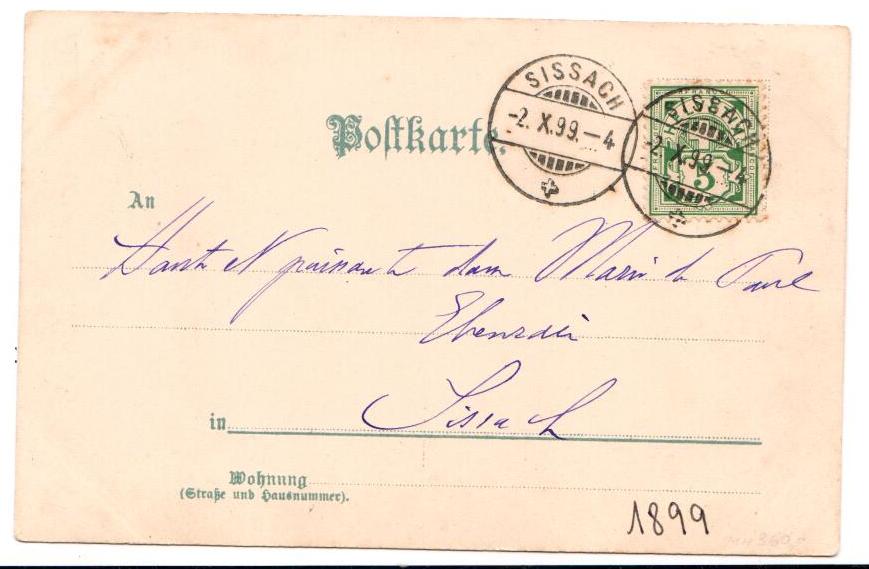 SISSACH
-2. X. 99. – 4
SISSACH
-2. X. 99 – 4
5
Postkarte.
An
Haute et puissante dam Marie de Faure
Ebenrain
in Sissach
Wohnung
(Straße und Hausnummer).
1899